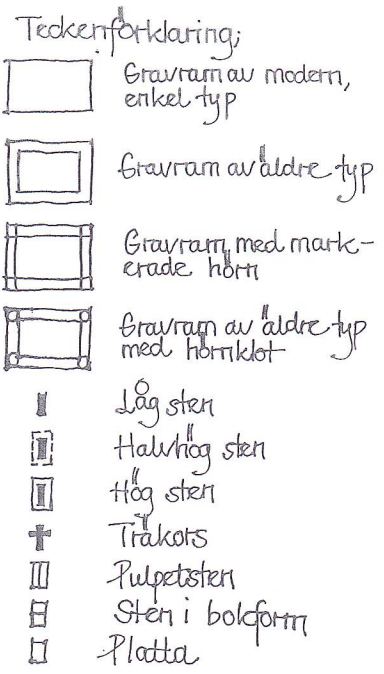 Teckenförklaring;
Gravram av modern,
enkel typ
Gravram av äldre typ
Gravram med mark-
erade hörn
Gravram av äldre typ
med hörnklot
Låg sten
Halvhög sten
Hög sten
Träkors
Pulpetsten
Sten i bokform
Platta